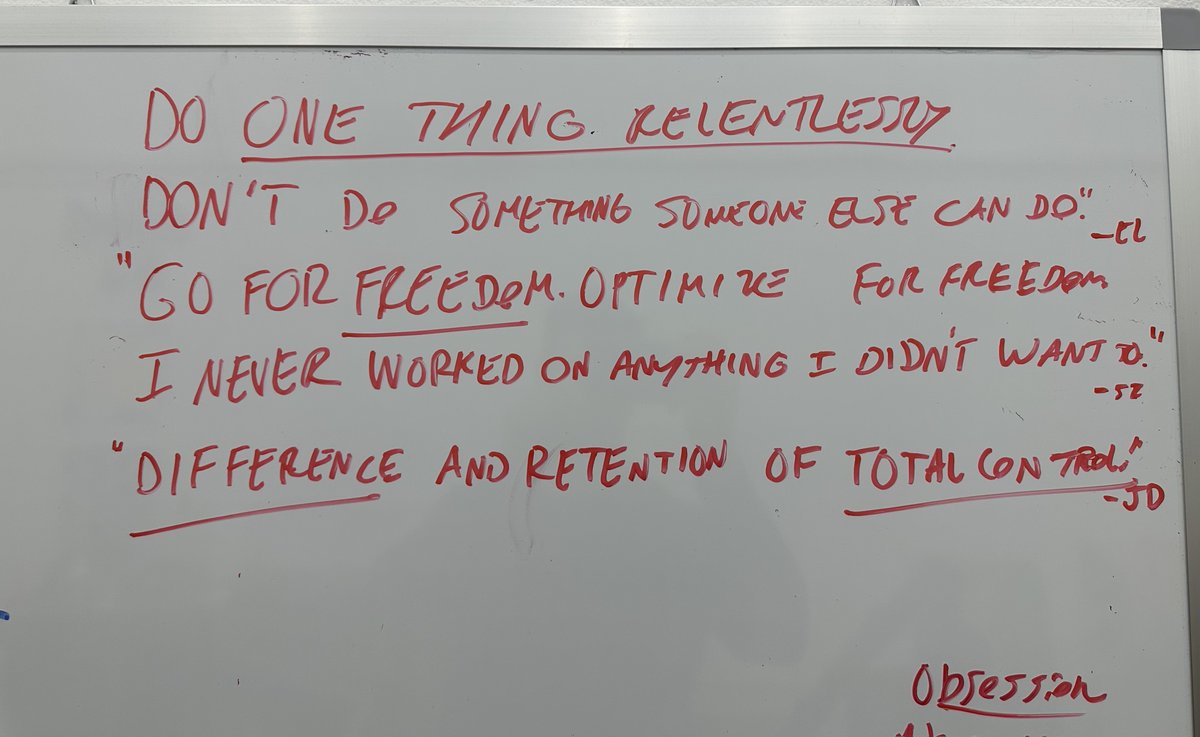 DO ONE THING. RELENTLESSLY.
DON'T DO SOMETHING SOMEONE ELSE CAN DO."
-EL
"GO FOR FREEDOM. OPTIMIZE FOR FREEDOM
I NEVER WORKED ON ANYTHING I DIDN'T WANT TO."
-SZ
"DIFFERENCE AND RETENTION OF TOTAL CONTROL."
-JD
Obsession